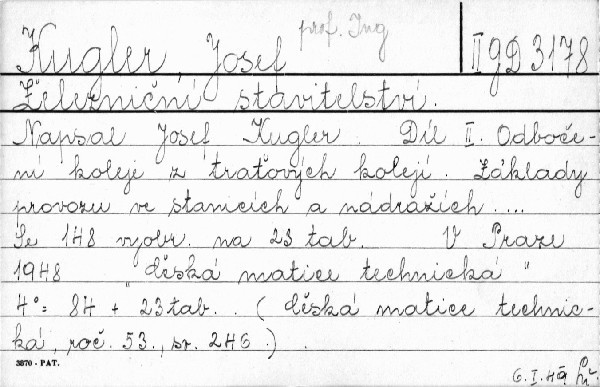 prof. Ing
Kugler, Josef
II GD 3178
Železniční stavitelství.
Napsal Josef Kugler. Díl II. Odboče-
ní koleje z traťových kolejí. Základy
provozu ve stanicích a nádražích....
Se 148 vyobr. na 23 tab. V Praze
1948 "Česká matice technická"
4°= 84 + 23 tab.. (Česká matice technic-
ká, roč. 53., sv. 246.)
3870 - PAT.
6.I.49